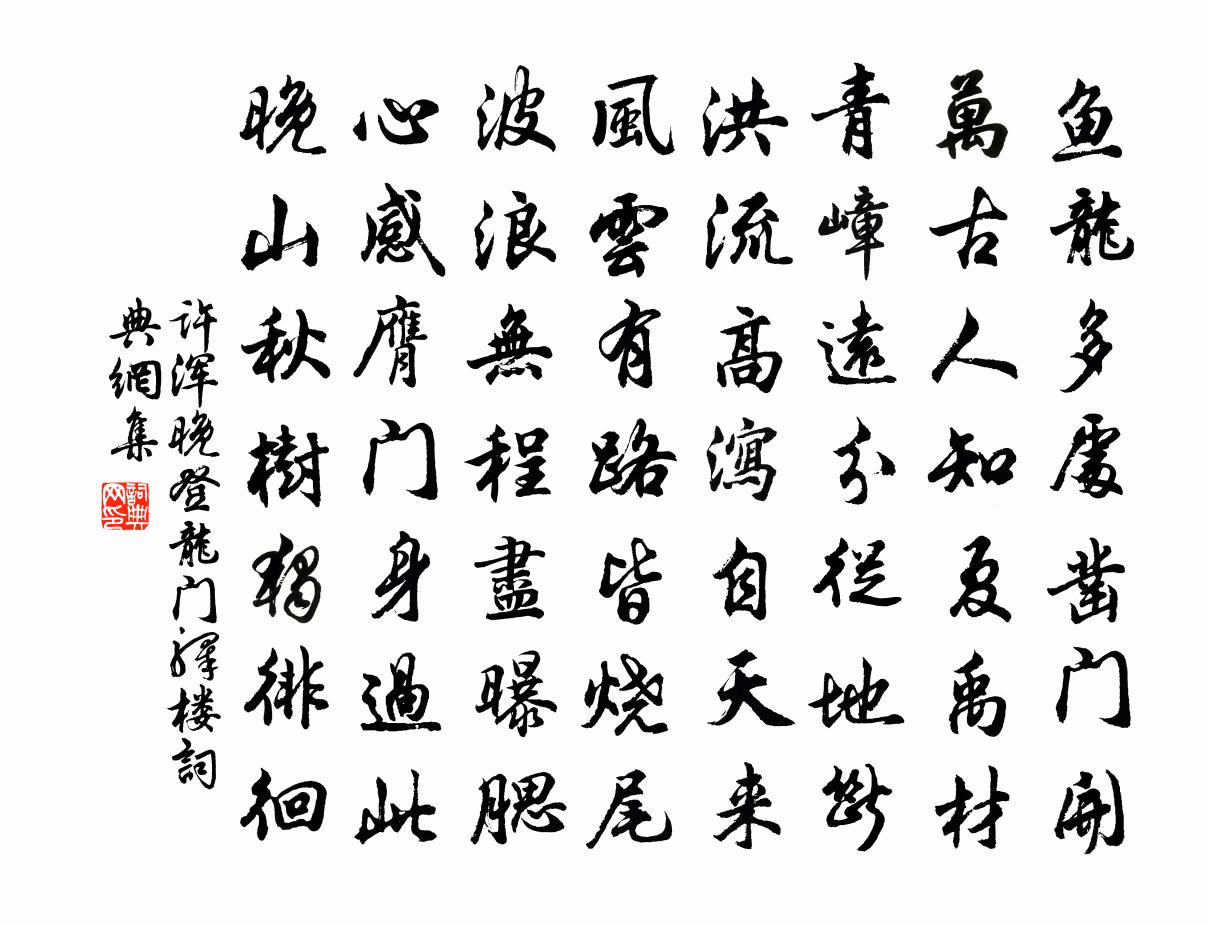 鱼龍多處凿门開
萬古人知夏禹材
青嶂遠分從地斷
洪流高瀉自天来
風雲有路皆烧尾
波浪無程盡曝腮
心感膺门身過此
晚山秋樹獨徘徊
许浑晚登龍门驛楼詞
典網集
詞典
网印